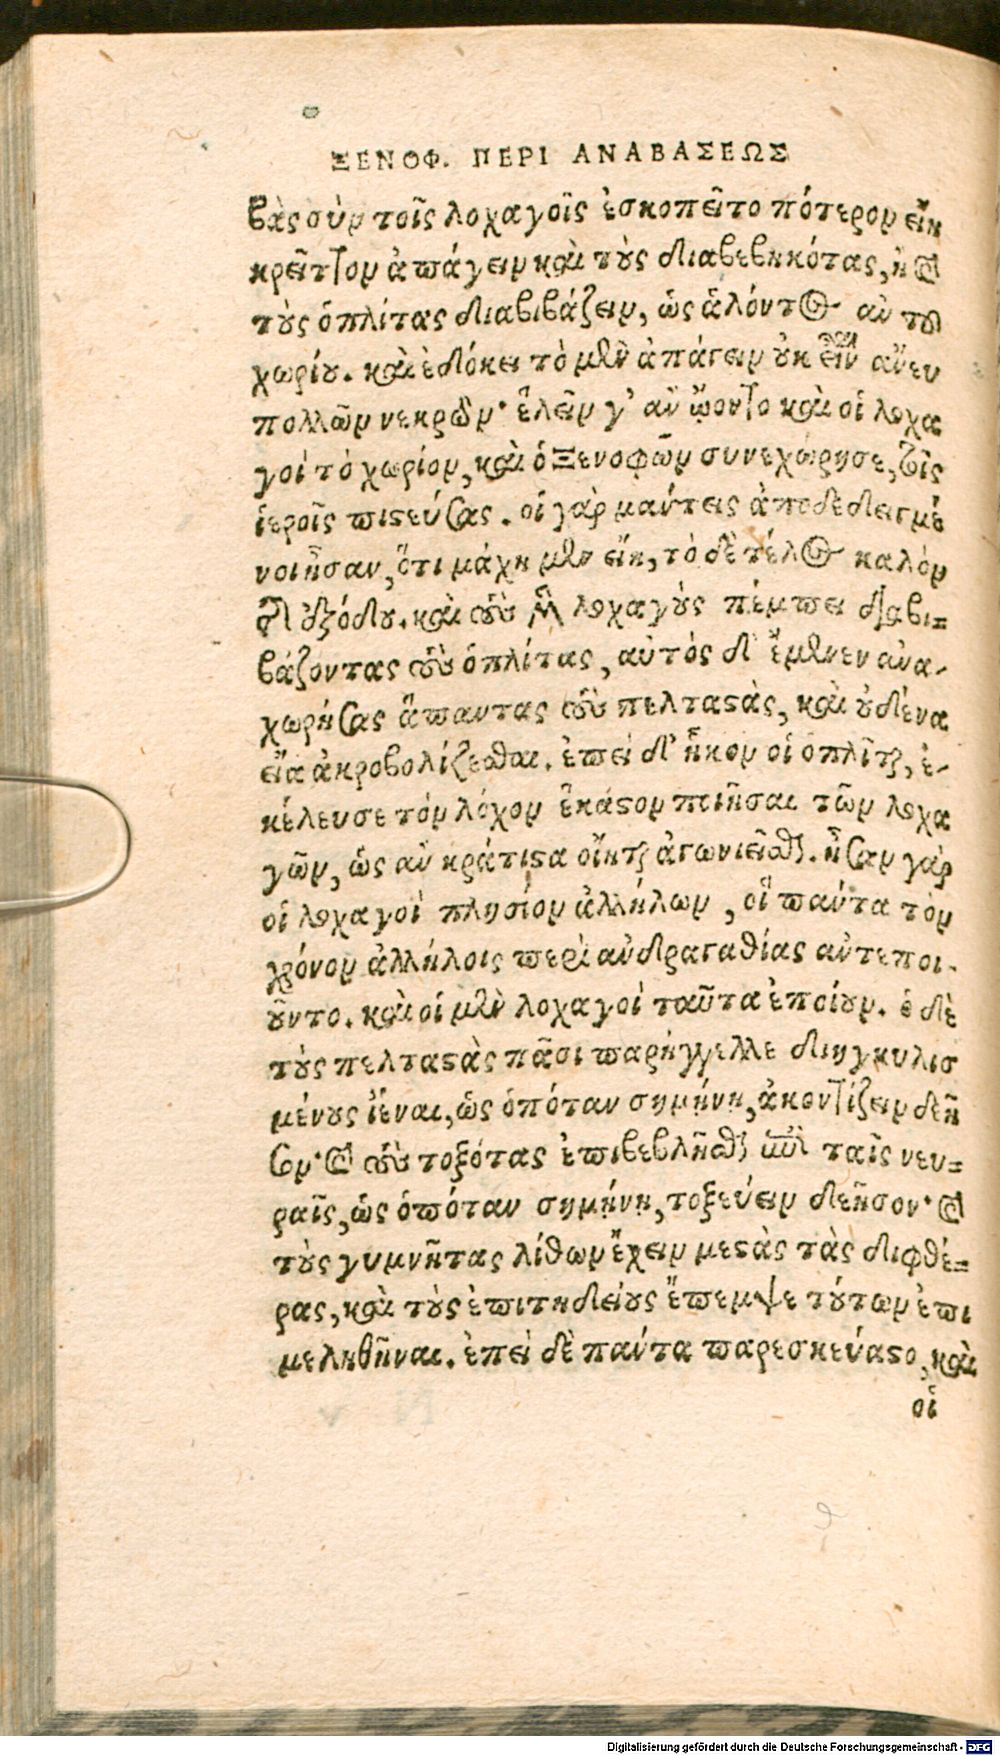 ΞΕΝΟΦ. ΠΕΡΙ ΑΝΑΒΑΣΕΩΣ
βὰς σὺν τοῖς λοχαγοῖς ἐσκοπεῖτο πότερον εἴη
κρεῖττον ἀπάγειν καὶ τοὺς διαβεβηκότας, ἢ καὶ
τοὺς ὁπλίτας διαβιβάζειν, ὡς ἁλόντος ἂν τοῦ
χωρίου. καὶ ἐδόκει τὸ μὲν ἀπάγειν οὐκ εἶναι ἄνευ
πολλῶν νεκρῶν· ἑλεῖν γ' ἂν ᾤοντο καὶ οἱ λοχα
γοὶ τὸ χωρίον, καὶ ὁ Ξενοφῶν συνεχώρησε, τοῖς
ἱεροῖς πιστεύσας. οἱ γὰρ μάντεις ἀποδεδειγμέ
νοι ἦσαν, ὅτι μάχη μὲν εἴη, τὸ δὲ τέλος καλὸν
τῆς ἐξόδου. καὶ τοὺς μὲν λοχαγοὺς πέμπει διαβι=
βάζοντας τοὺς ὁπλίτας, αὐτὸς δ' ἔμενεν ἀνα-
χωρήσας ἅπαντας τοὺς πελταστὰς, καὶ οὐδένα
εἴα ἀκροβολίζεσθαι. ἐπεὶ δ' ἧκον οἱ ὁπλῖται, ἐ-
κέλευσε τὸν λόχον ἕκαστον ποιῆσαι τῶν λοχα
γῶν, ὡς ἂν κράτιστα οἴηται ἀγωνιεῖσθαι. ἦσαν γὰρ
οἱ λοχαγοὶ πλησίον ἀλλήλων, οἳ πάντα τὸν
χρόνον ἀλλήλοις περὶ ἀνδραγαθίας ἀντεποι-
οῦντο. καὶ οἱ μὲν λοχαγοὶ ταῦτα ἐποίουν. ὁ δὲ
τοὺς πελταστὰς πᾶσι παρήγγελλε διηγκυλισ
μένους ἰέναι, ὡς ὁπόταν σημήνῃ, ἀκοντίζειν δεῆ
σον· καὶ τοὺς τοξότας ἐπιβεβλῆσθαι ἐπὶ ταῖς νευ=
ραῖς, ὡς ὁπόταν σημήνῃ, τοξεύειν δεῆσον· καὶ
τοὺς γυμνῆτας λίθων ἔχειν μεστὰς τὰς διφθέ=
ρας, καὶ τοὺς ἐπιτηδείους ἔπεμψε τούτων ἐπι
μεληθῆναι. ἐπεὶ δὲ πάντα παρεσκεύαστο, καὶ
οἱ
Digitalisierung gefördert durch die Deutsche Forschungsgemeinschaft - DFG